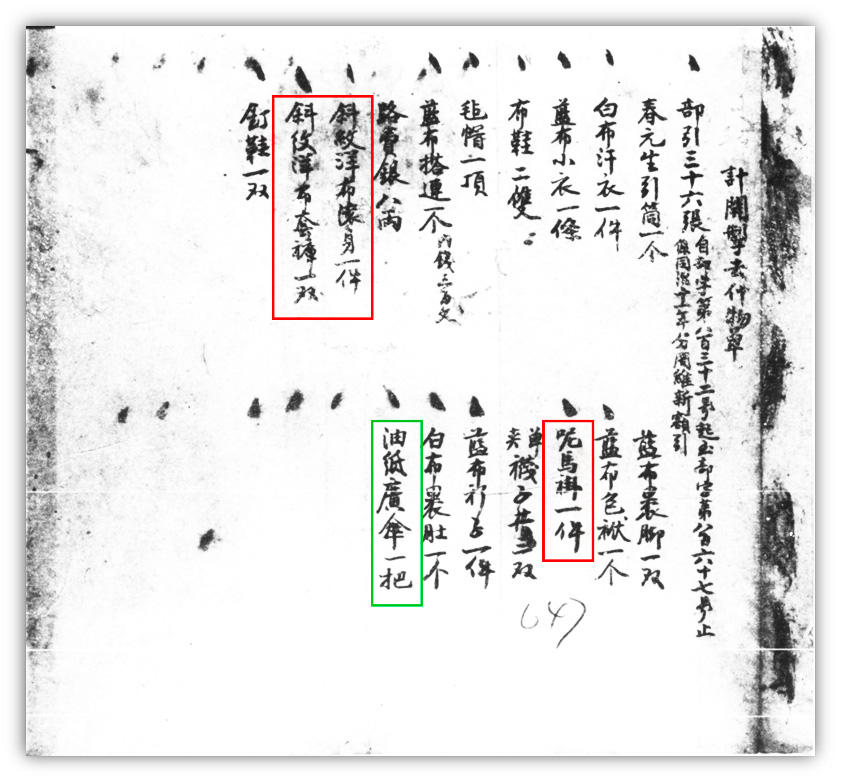 計開掣去什物單
部引三十六張
自部字第八百三十二号起至部字第八百六十七号止
係同治十一年分閬維新額引
春元生引筒一个
白布汗衣一件
藍布小衣一條
布鞋二雙
毡帽一頂
藍布搭連一个
內錢三百文
路費銀八兩
斜紋洋布滚身一件
斜紋洋布套褲一双
釘鞋一双
藍布裹脚一双
藍布包袱一个
呢馬褂一件
單夾襪子共双
藍布衫子一件
白布裹肚一个
油紙廣傘一把
(47)